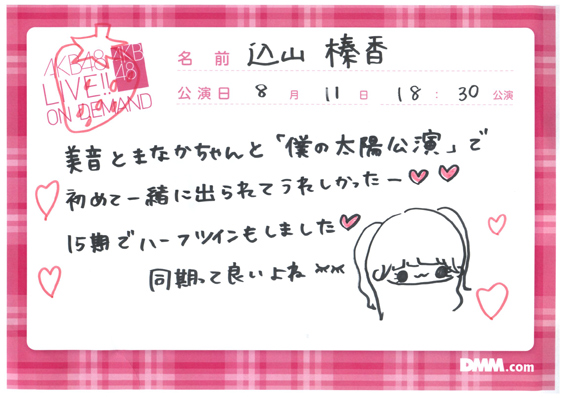 AKB48 AKB
48
LIVE!!
ON DEMAND
名前 込山榛香
公演日 8月11日 18:30公演
美音とまなかちゃんと「僕の太陽公演」で
初めて一緒に出られてうれしかったー
15期でハーフツインもしました
同期って良いよね
DMM.com